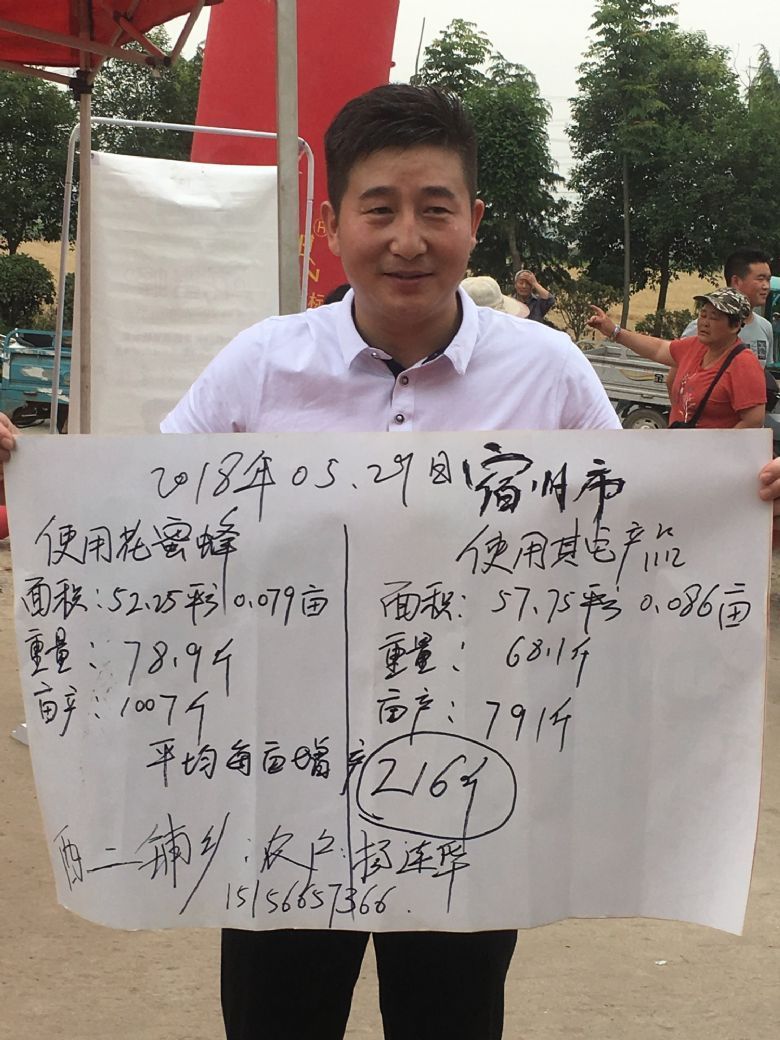 2018年05.29日 宿州市
使用花蜜蜂
面积:52.25平方 0.079亩
重量:78.9斤
亩产:1007斤
使用其它产品
面积:57.75平方 0.086亩
重量:68.1斤
亩产:791斤
平均每亩增产 216斤
西二铺乡:农户:杨连华
15156657366.
标